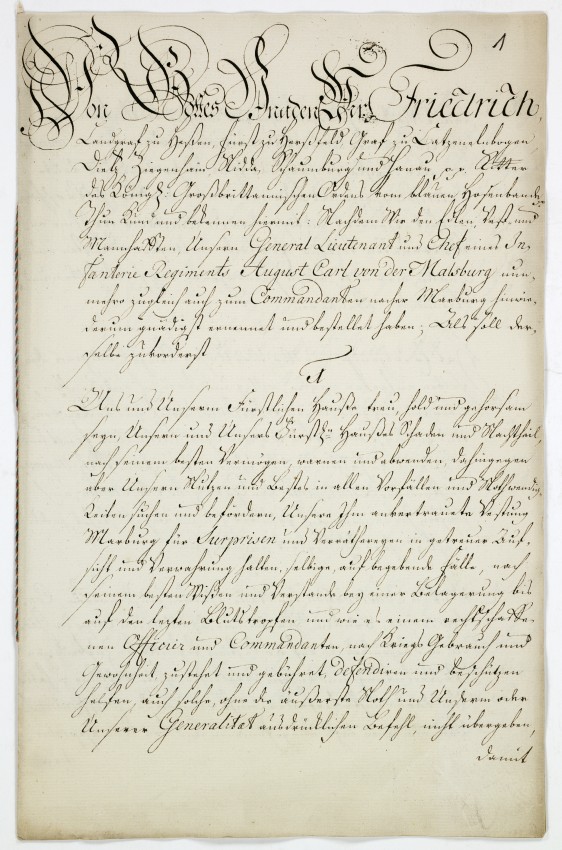 1
Von Gottes Gnaden Wir Friedrich,
Landgraf zu Hessen, Fürst zu Hersfeld, Graf zu Catzenelnbogen,
Dietz, Ziegenhain, Nidda, Schaumburg und Hanau, p. p. Ritter
des Königl. Großbrittannischen Ordens vom blauen Hosenbande
Thun Kund und bekennen hiermit: Nachdem Wir den Edlen, Vest, und
Mannhafften, Unsern General Lieutenant und Chef eines In,
fanterie Regiments August Carl von der Malsburg, nun,
mehro zugleich auch zum Commandanten nacher Marburg hinwie,
derum gnädigst ernennet und bestellet haben; Als soll der,
selbe zuvorderst
1
Uns und Unserm Fürstlichen Hauße treu, hold und gehorsam
seyn, Unsern und Unsers Fürstl. Haußes Schaden und Nachtheil,
nach seinem besten Vermögen, warnen und abwenden, dahingegen
aber Unsern Nutzen und Bestes in allen Vorfällen und Nothwendig,
keiten suchen und befördern, Unsere Ihm anvertrauete Vestung
Marburg für Surprisen und Verräthereyen in getreuer Auf,
sicht und Verwahrung halten, selbige, auf begebende Fälle, nach
seinem besten Wißen und Verstande bey einer Belagerung bis
auf den lezten Blutstropfen und wie es einem rechtschaffe,
nen Officier und Commandanten, nach Kriegs Gebrauch und
Gewohnheit, zustehet und gebühret, defendiren und beschützen
helfen, auch solche, ohne die äußerste Noth und Unsern oder
Unserer Generalitat ausdrücklichen Befehl, nicht übergeben,
damit